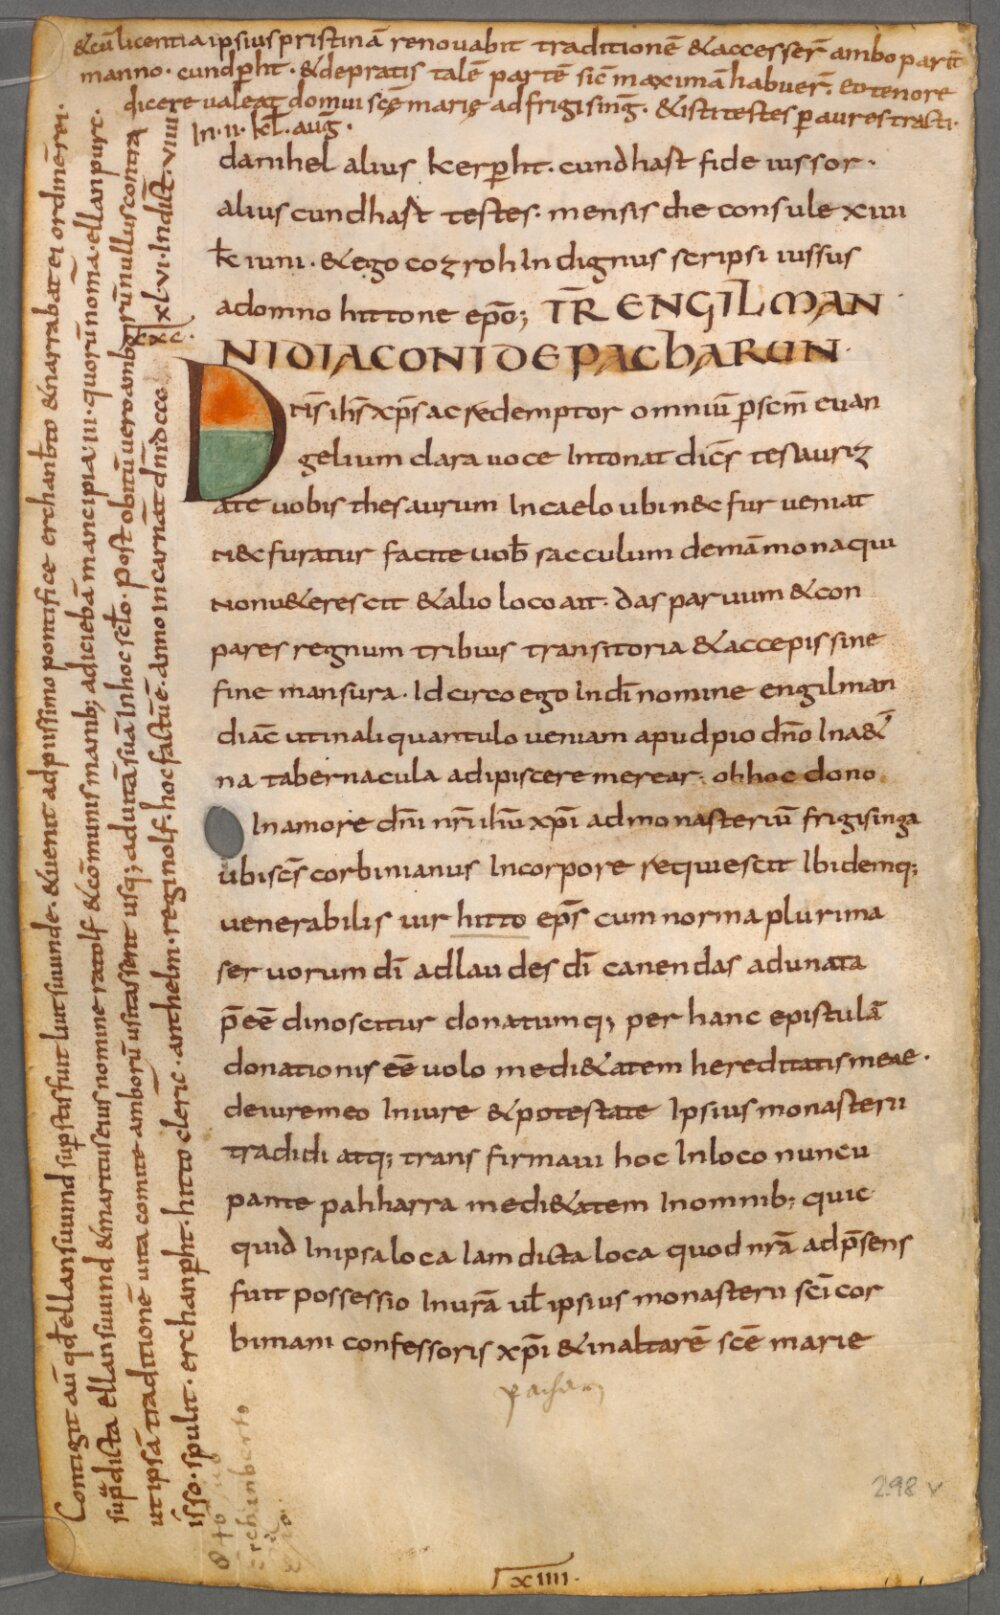 &cū licentia ipsius pristinā renouabit traditionē & accesser̄ ambo parit̄
manno · cundp̄ht · & depratis talē partē sic̄ maximā habuer̄ · eo tenore
dicere ualeat domui scē marię ad frigising̅ · & isti testes p aures tracti ·
In · ii · kl̄ · aug̅ ·
danihel alius kerp̄ht · cundhast fide iussor ·
alius cundhast testes · mensis die consule xiiii
kl̄ iuni · & ego cozroh Indignus scripsi iussus
adomno hittone ep̄o; TR̄ ENGILMAN
NI DIACONI DE PACHARUN ·
cxc ·
Dn̄s ih̄s xp̄s ac redemptor omniū p scm̄ euan
gelium clara uoce Intonat dicēs tesauriz
ate uobis thesaurum In caelo ubi n&c fur ueniat
n&c furatur facite uob̄ sacculum demāmona qui
non u&erescit & alio loco ait · das paruum & con
pares regnum tribuis transitoria & accepis sine
fine mansura · Id circo ego In dī nomine engilman
diac̄ ut in aliquantulo ueniam apud pio dn̄o In a&̄
na tabernacula adipiscere merear · ob hoc dono
In amore dn̄i nr̄i ih̄u xp̄i ad monasteriū frigisinga
ubi sc̄s corbinianus In corpore requiescit Ibidemq;
uenerabilis uir hitto ep̄s cum norma plurima
seruorum dī ad laudes dī canendas adunata
p̄eē dinoscitur donatumq; per hanc epistulā
donationis eē uolo medi&atem hereditatis meae ·
de iure meo In iure & potestate Ipsius monasterii
tradidi atq; trans firmaui hoc In loco nuncu
pante pahharra medi&atem In omnib; quic
quid In ipsa loca Iam dicta loca quod nr̄a ad p̄sens
fuit possessio In urā ul̄ ipsius monasterii sc̄i cor
biniani confessoris xp̄i & in altarē scē marie
Contigit aū qd̄ ellansuuind sup̄stis fuit liutsuuinde · & uenit ad piissimo pontifice erchanb̄to & narrabat ei ordinē rei ·
sup̄dicta ellansuuind & maritus eius nomine ratolf & cōmunis manib; adiciebā mancipia · iii · quorū nom̄a · ellanpurc ·
ut ipsā traditionē una comite amborū usitassent usq; ad uitā suā In hoc sc̄lo · Post obitū uero amborū nullus contra
isso · spulit · erchanp̄ht · hitto cleric̄ · anthelm · reginolf · hoc factū ē · anno incarnat̄ dn̄i dccc xl vi · Indict̄ · viiii
erchanberto
298 v
xiiii ·